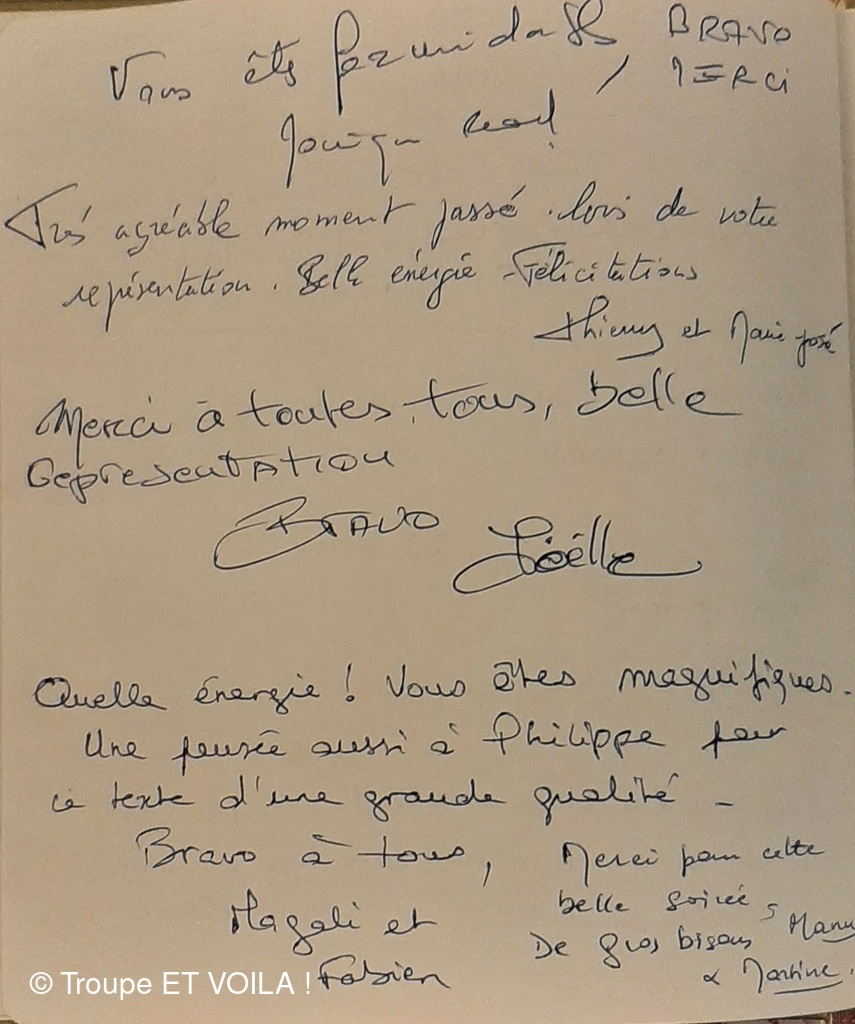 Vous êts formidabls, BRAVO
MERCI
Très agréable moment passé lors de votre
représentation. Belle énergie - Félicitations
Thierry et Marie José
Merci à toutes, tous, belle
représentation
BRAVO Joëlle
Quelle énergie ! Vous êtes magnifiques.
Une pensée aussi à Philippe pour
ce texte d'une grande qualité -
Bravo à tous,
Magali et
Fabien
Merci pour cette
belle soirée
De gros bisous Manu
& Martine.
© Troupe ET VOILA !